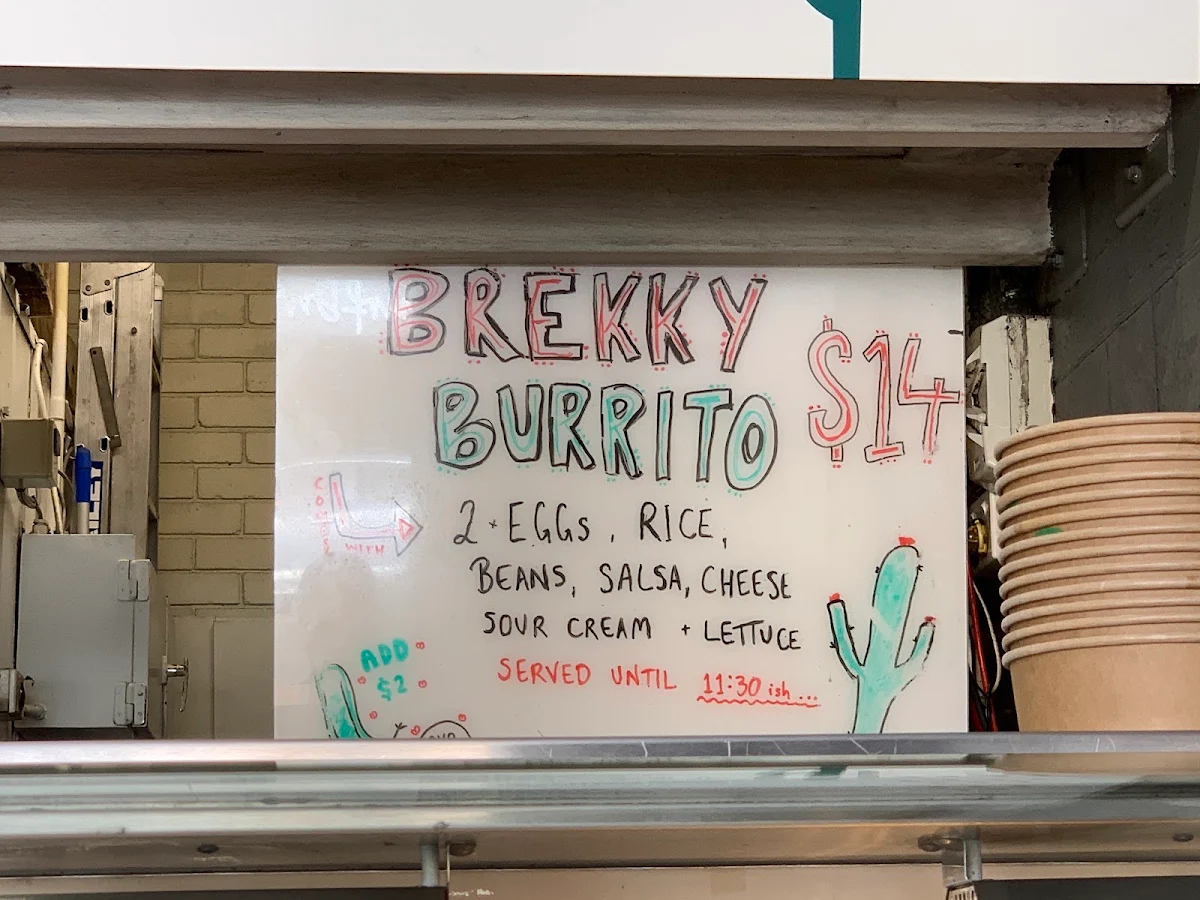 BREKKY
BURRITO
$14
COMES
WITH
2 EGGS, RICE,
BEANS, SALSA, CHEESE
SOUR CREAM + LETTUCE
SERVED UNTIL 11:30 ish...
ADD
$2